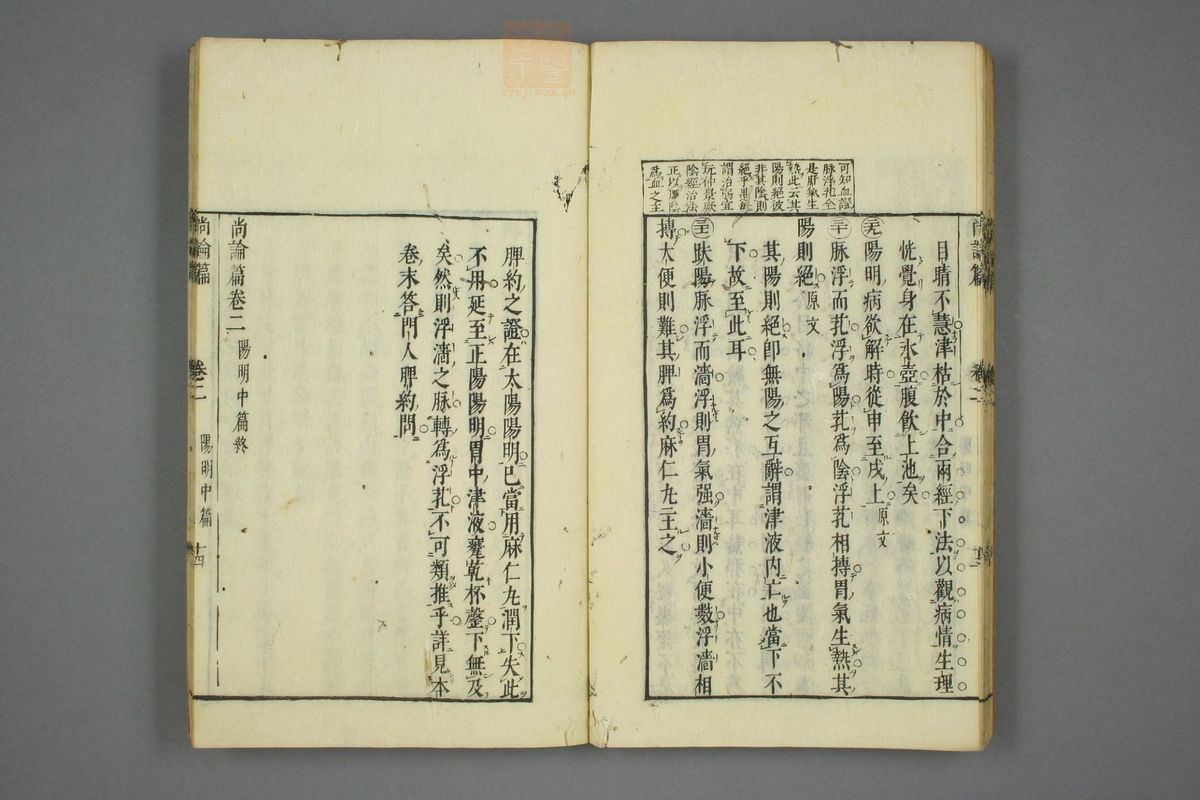 可知血證
脉浮芤全
是胃氣生
熱此云其
陽則絕彼
非其陰則
絕乎果爾
謂治寫宜
玩仲景厥
陰經治法
正以厥陰
爲血之主
目睛不慧津枯於中合兩經下法以觀病情生理
恍覺身在氷壺腹飮上池矣
九陽明病欲解時從申至戌上原文
三十脉浮而芤浮爲陽芤爲陰浮芤相摶胃氣生熱其
陽則絕原文
其陽則絕卽無陽之互辭謂津液内亡也當下不
下故至此耳
三一趺陽脉浮而濇浮則胃氣强濇則小便數浮濇相
摶大便則難其脾爲約麻仁丸主之
脾約之證在太陽陽明已當用麻仁丸潤下失此
不用延至正陽陽明胃中津液壅乾杯罄下無及
矣然則浮濇之脉轉爲浮芤不可類推乎詳見本
卷末答門人脾約問
尚論篇卷二陽明中篇終
尚論篇 卷二 陽明中篇 十四
zysj.com.cn